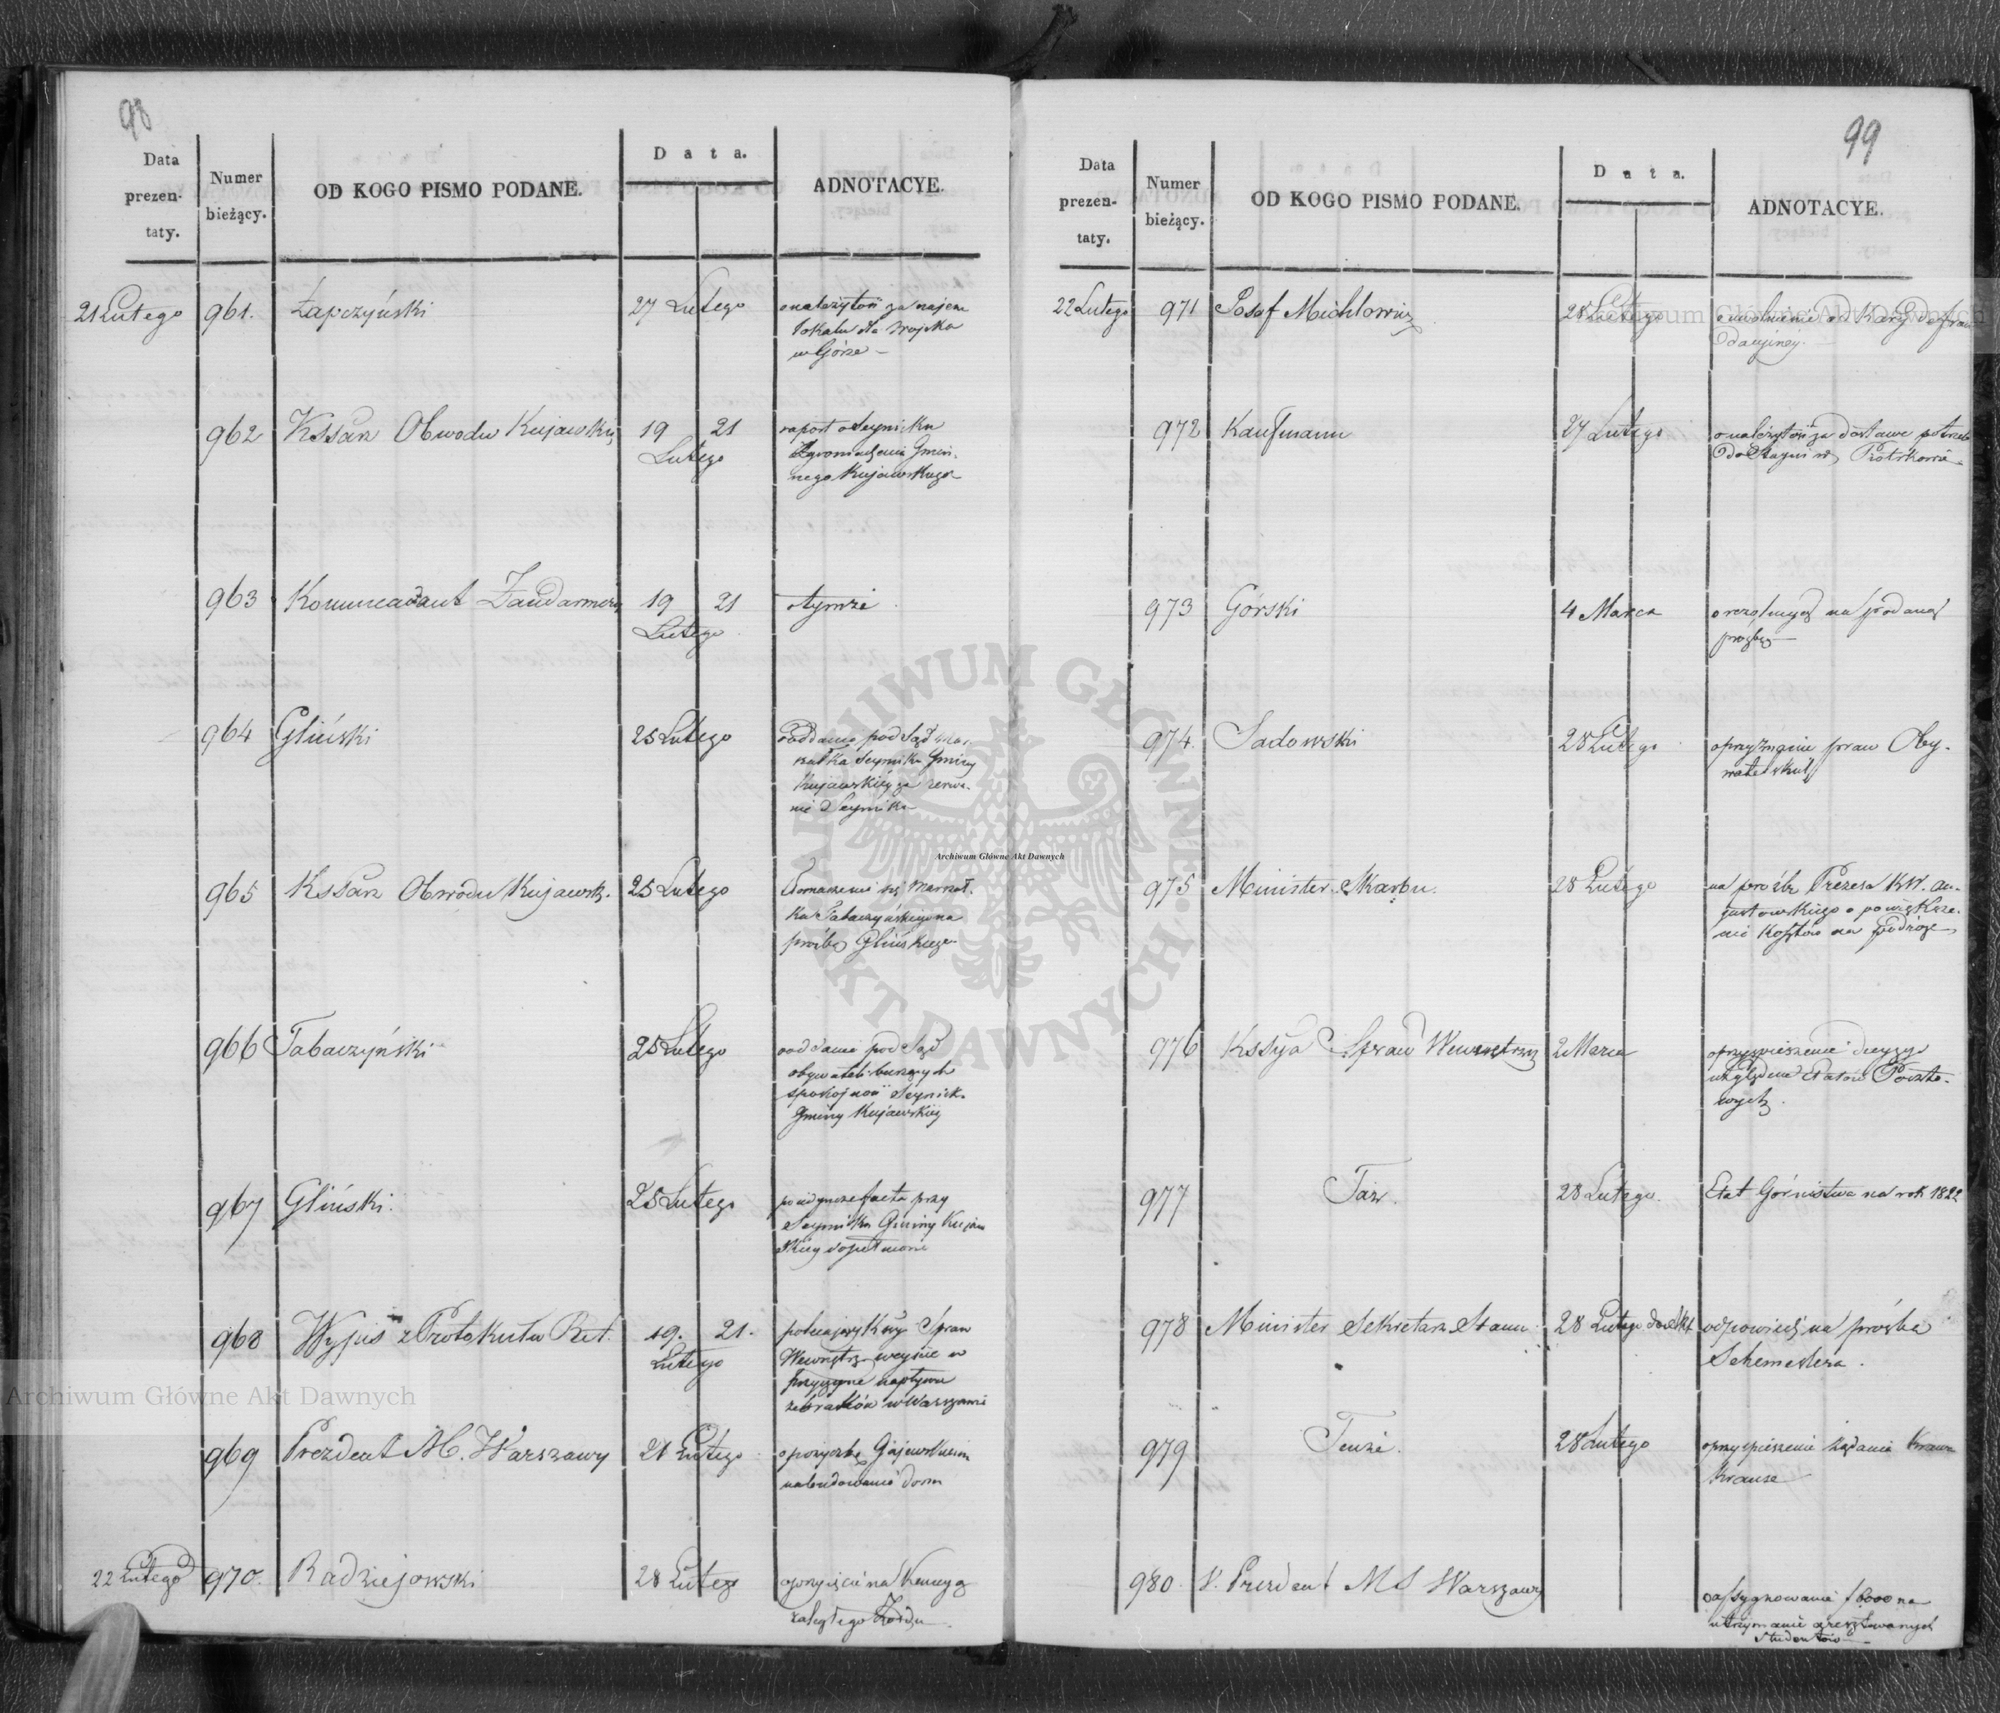 98
Data
prezen-
taty.
Numer
bieżący.
OD KOGO PISMO PODANE.
Data.
ADNOTACYE.
21 Lutego 961. Łapczyński 27 Lutego o należytość za najem
lokalu dla Woyska
w Górze —
962 Kssarz Obwodu Kujawskiej 19 21
Lutego
raport o Seymiku
Zgromadzenia Gmin-
nego Kujawskiego
963 Kommendant Żandarmeryi 19 21
Lutego
o tymże
964 Gliński 25 Lutego oddanie pod Sąd Mar-
szałka Seymiku Gminy
Kujawskiey za zerwa-
nie Seymiku
965 Kssarz Obwodu Kujawsk. 25 Lutego
Marszał-
ka Tabaczyńskiego na
prośbę Glińskiego
966 Tabaczyński 25 Lutego o oddanie pod Sąd
obywateli burzących
spokojność Seymik.
Gminy Kujawskiey
967 Gliński. 25 Lutego
facta przy
Seymiku Gminy Kujaw
skiey dopełnione
968 Wypis z Protokułu Ret. 19. 21.
Lutego
polecający Kssyi Spraw
Wewnętrz. weyście w
przyczynę napływu
żebraków w Warszawie
969 Prezdent M. Warszawy 21 Lutego o pożyczkę Gajewskiem
na budowanie dom
22 Lutego 970. Radziejowski 28 Lutego
zaległego Żołdu
99
Data
prezen-
taty.
Numer
bieżący.
OD KOGO PISMO PODANE.
Data.
ADNOTACYE.
22 Lutego 971 Josef Michlowicz 28 Lutego o uwolnienie od Kary defrau
dacyiney.
972 Kaufmann 27 Lutego o należytość za dostawę potrzeb
do Stayni w Piotrkowie
973 Górski 4 Marca o rezolucyą na podaną
prozbę —
974. Sadowski 28 Lutego o przyznanie praw Oby-
watelskich
975 Minister Skarbu. 28 Lutego na prozbę Prezesa KW. Au-
gustowskiego o powiększe-
nie Kosztów na podróże
976 Kssya Spraw Wewnętrzn 2 Marca o przyspieszenie decyzyi
względem Etatów Poczto-
wych.
977 Taż. 28 Lutego. Etat Górnictwa na rok 1822
978 Minister Sekretarz Stanu 28 Lutego do Akt odpowiedź na prośbę
Schemestera.
979 Tenże. 28 Lutego o przyspieszenie żądania
Krause
980. V. Prezdent M S Warszawy
o assygnowanie f 6000 na
utrzymanie aresztowanych
Studentów —
ARCHIWUM GŁÓWNE AKT DAWNYCH
Archiwum Główne Akt Dawnych
Archiwum Główne Akt Dawnych
Archiwum Główne Akt Dawnych